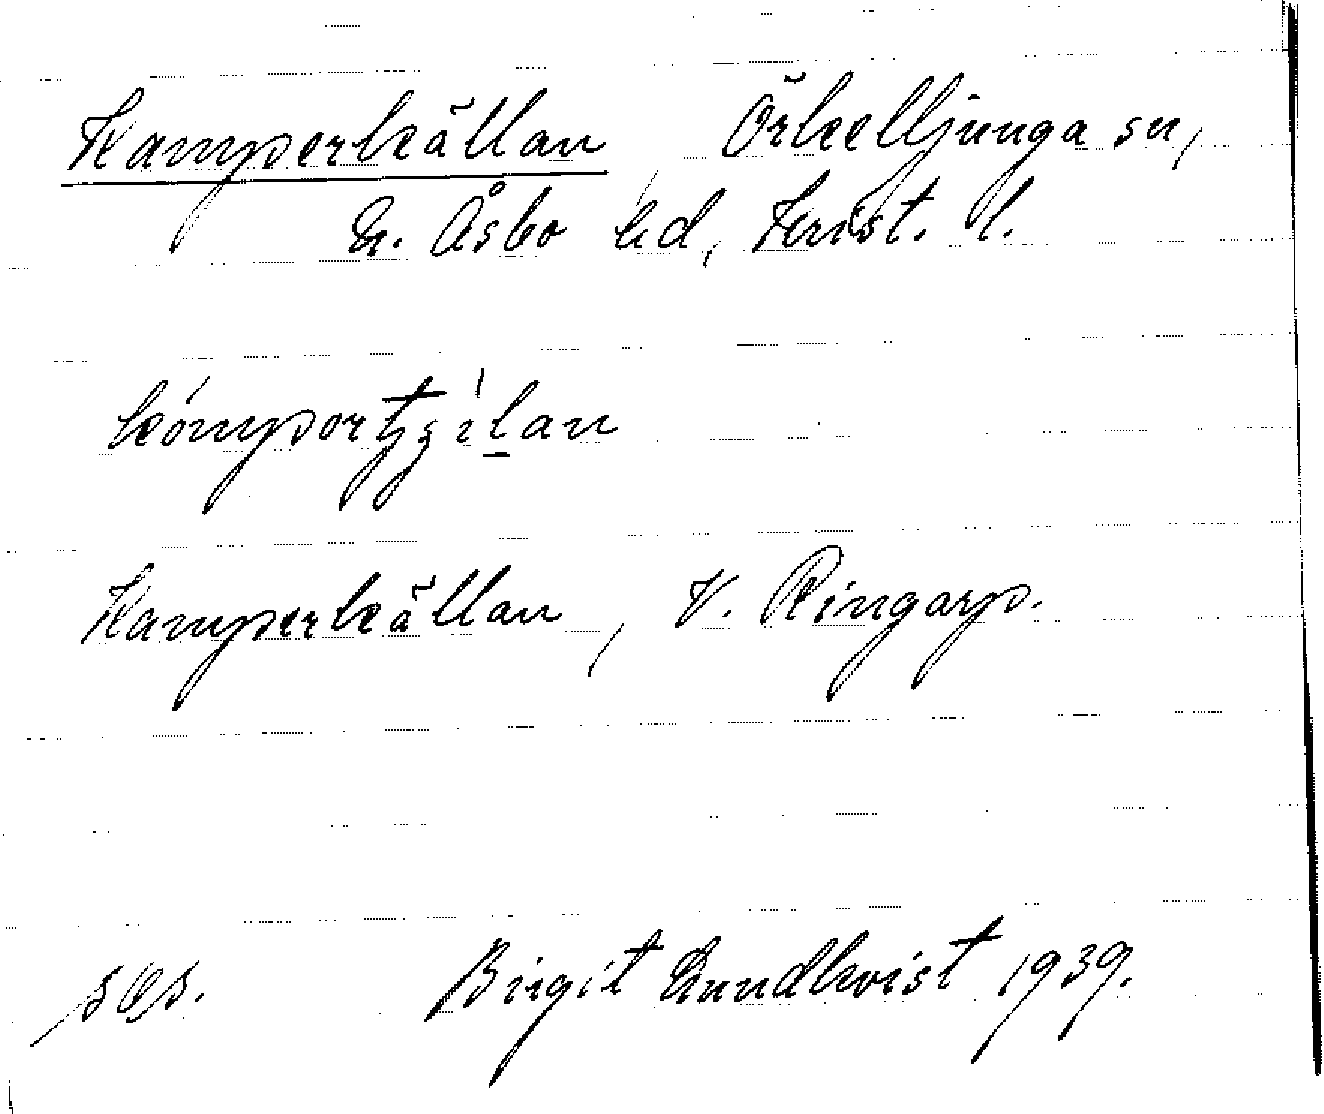 Kamperkällan, Örkelljunga sn,
N. Åsbo hd, Krist. l.
Kamperkällan, V. Ringarp.
Birgit Lundkvist 1939.